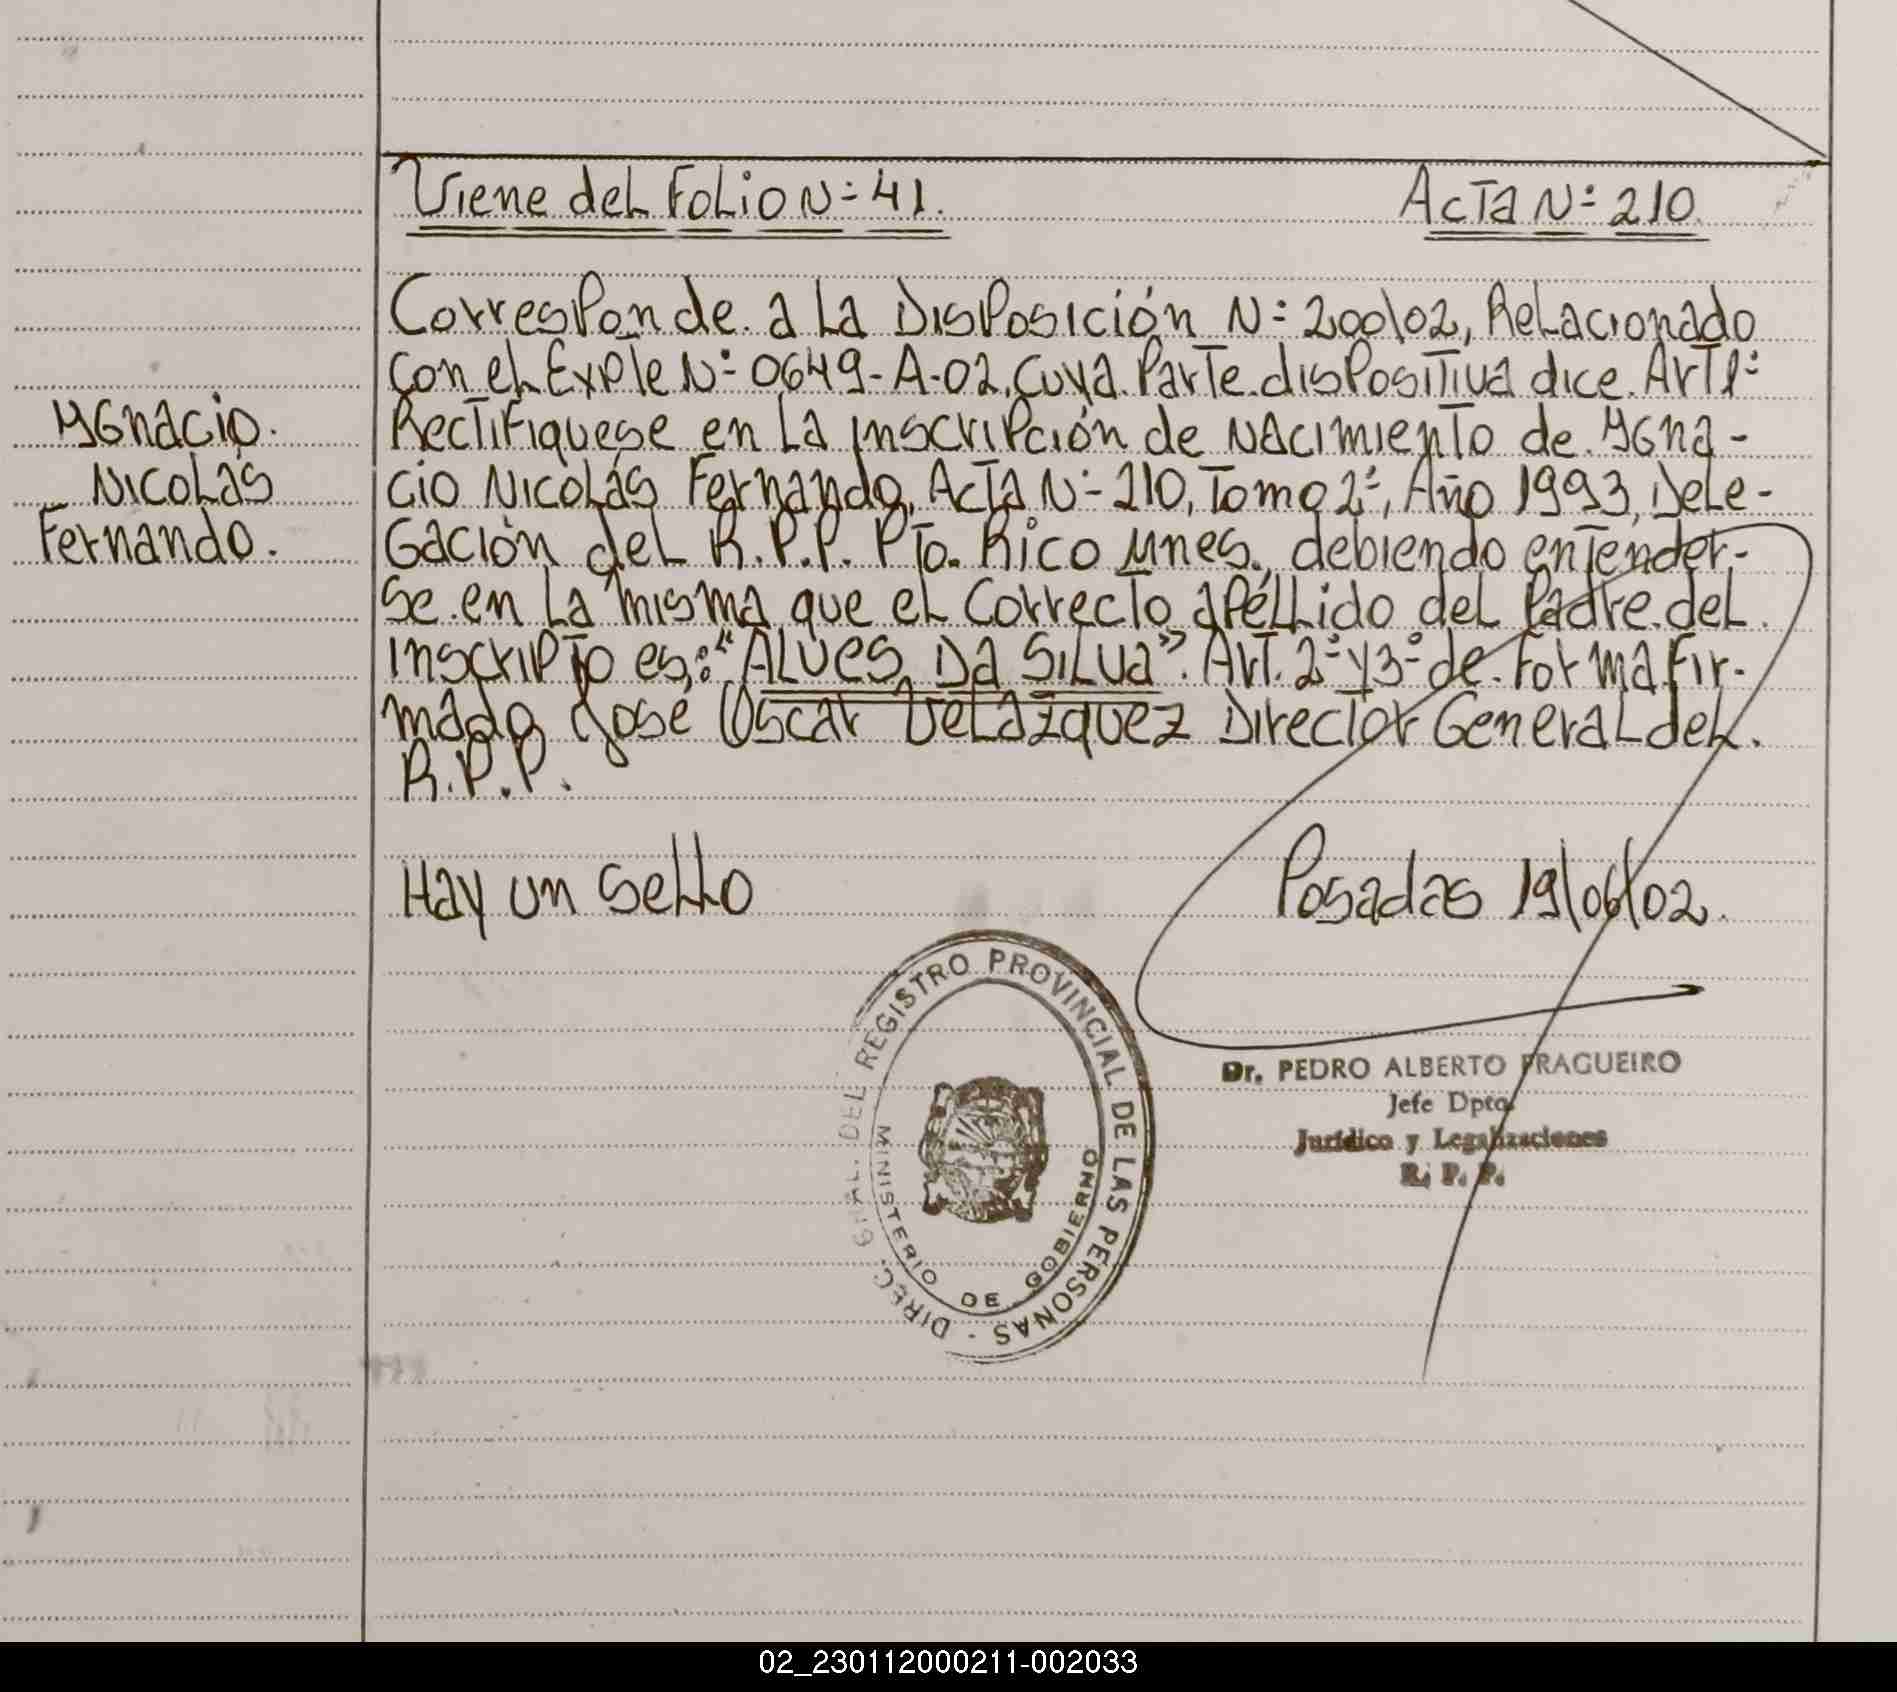 Viene del Folio N= 41. Acta N= 210.
Corresponde a la Disposición N= 200/02, Relacionado
con el Expte N= 0649-A-02, cuya Parte dispositiva dice. Art 1=
Ygnacio. Rectifiquese en la inscripción de nacimiento de Ygna-
Nicolás cio Nicolás Fernando, Acta N= 210, Tomo 2=, Año 1993, Dele-
Fernando. gación del R.P.P. Pto. Rico Mnes., debiendo entender-
se en la misma que el correcto apéllido del Padre del
inscripto es: "ALVES DA SILVA". Art. 2= y 3= de forma fir-
mado José Oscar Velazquez Director General del.
R.P.P.
Hay un sello Posadas 19/06/02.
DIREC. GRAL. DEL REGISTRO PROVINCIAL DE LAS PERSONAS -
MINISTERIO DE GOBIERNO
Dr. PEDRO ALBERTO FRAGUEIRO
Jefe Dpto.
Jurídico y Legalizaciones
R. P. P.
02_230112000211-002033